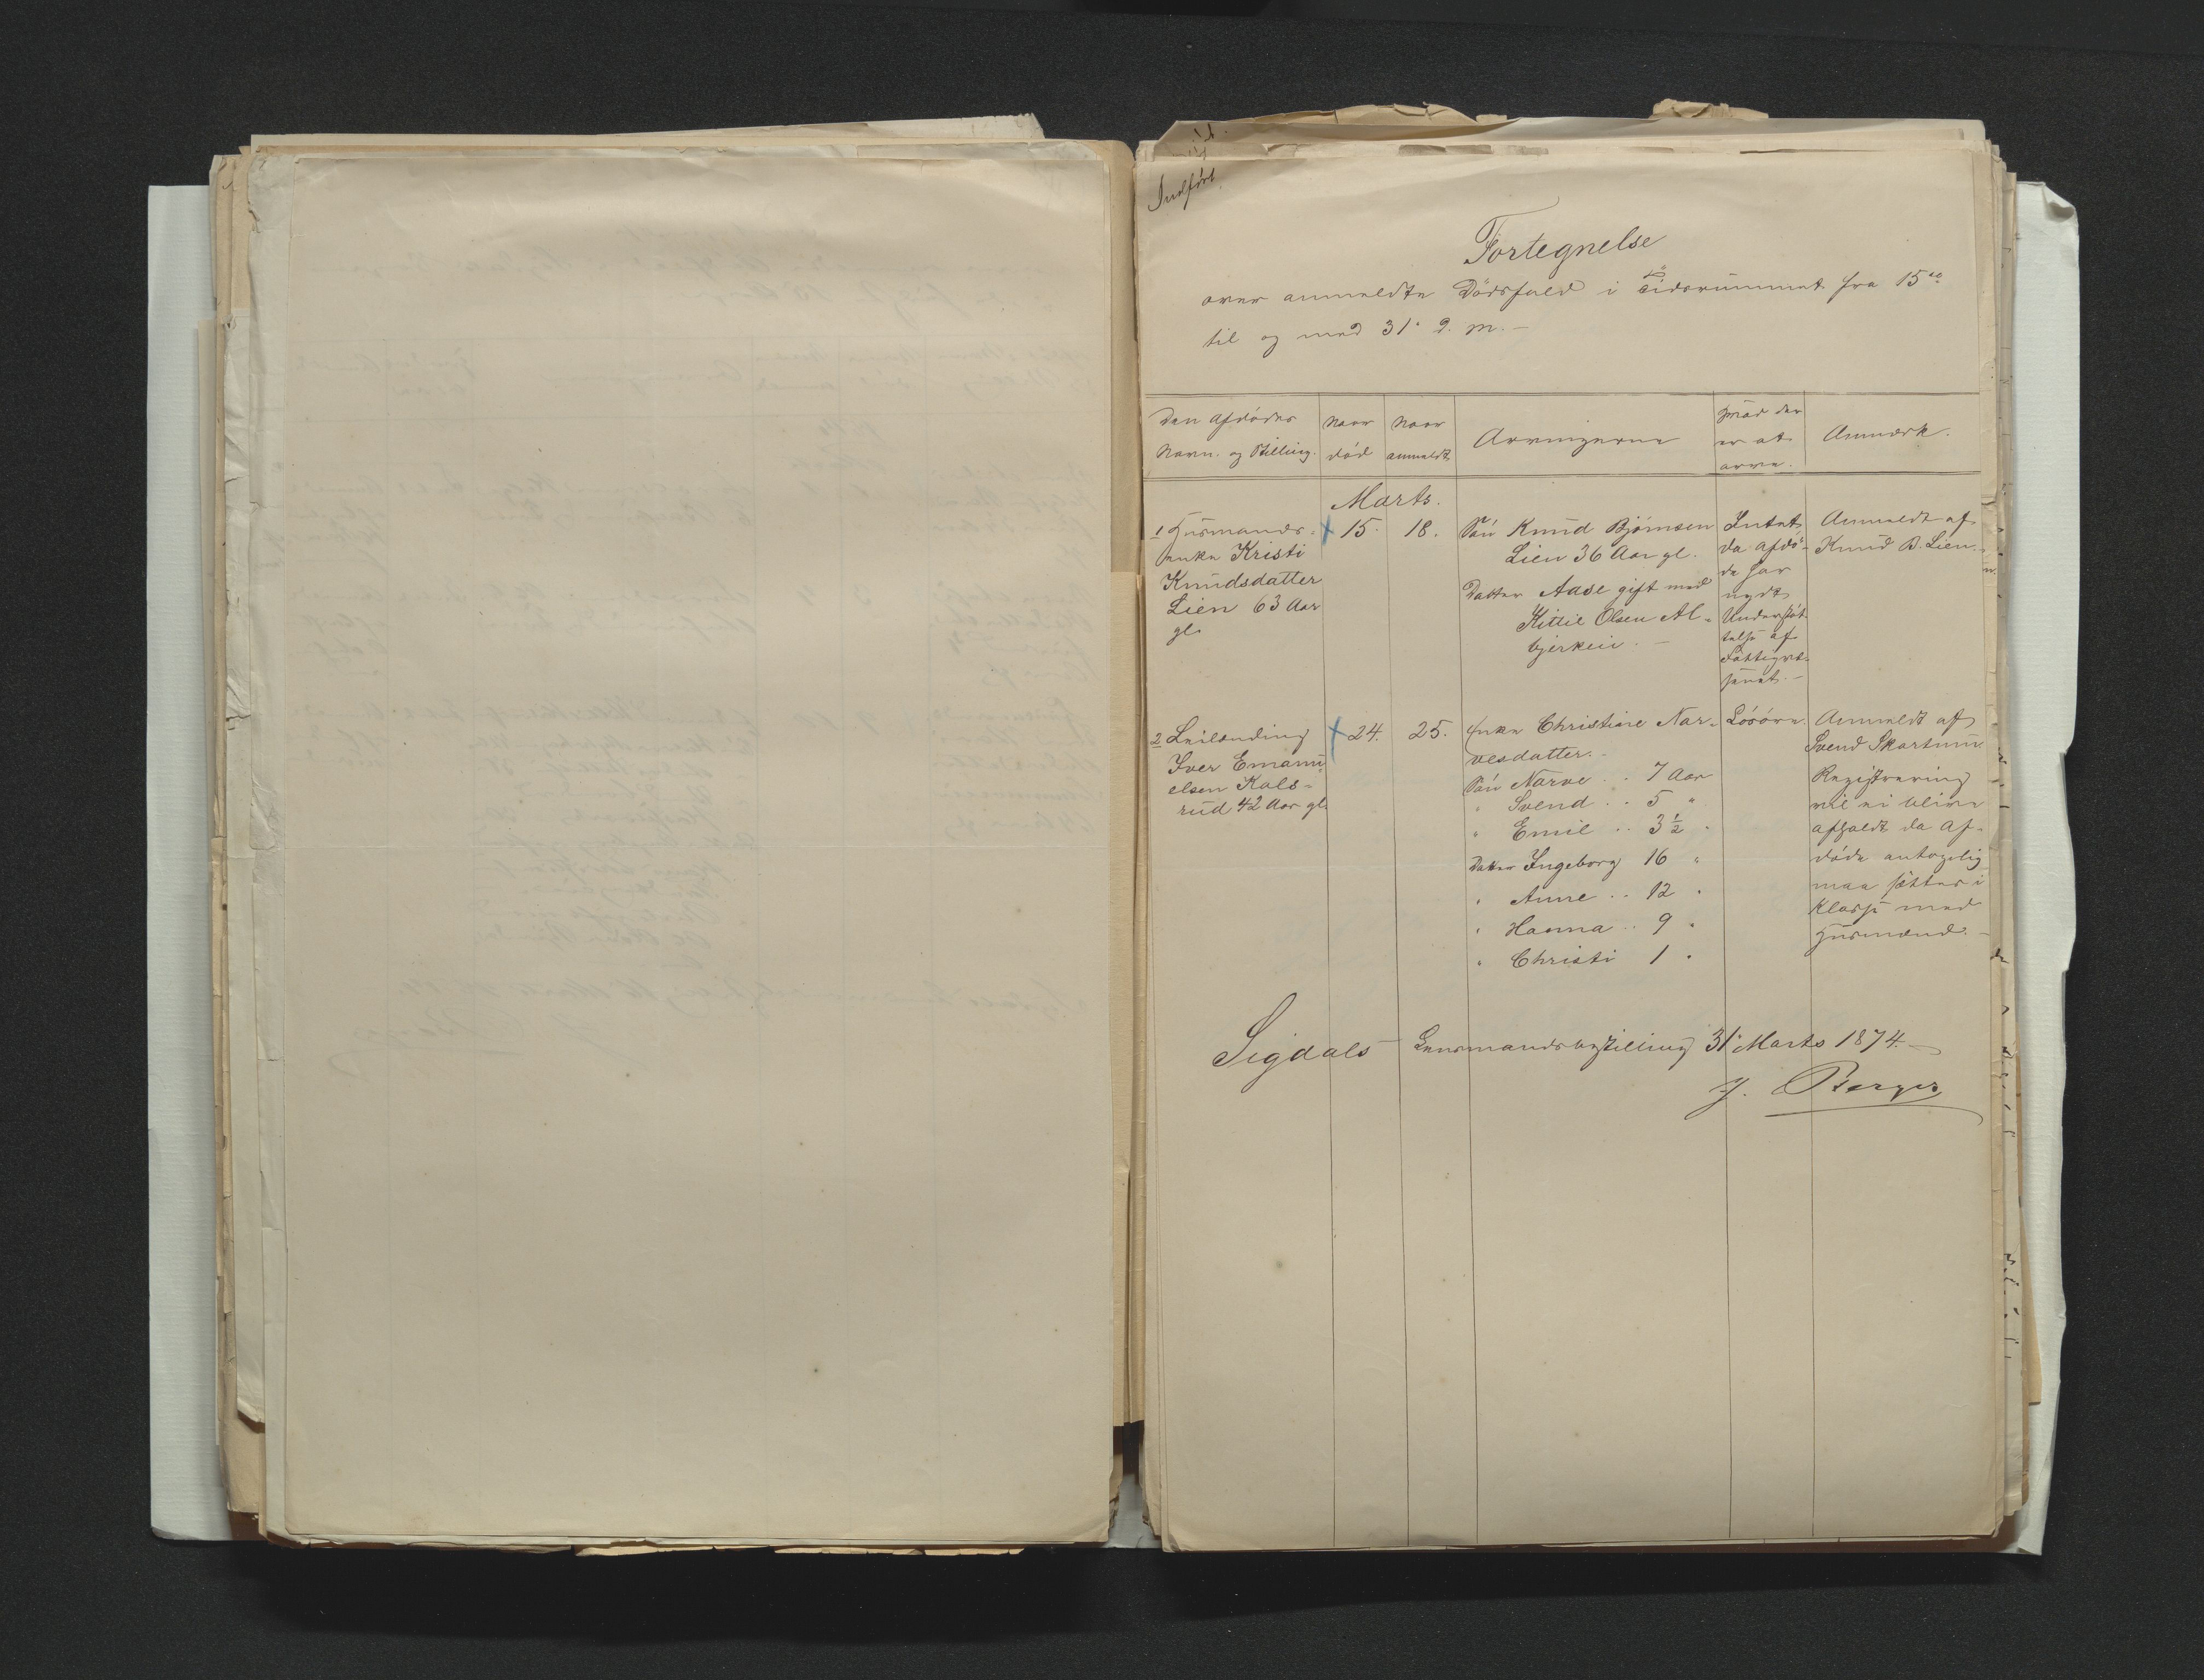 Indført
Fortegnelse
over anmeldte Dödsfald i Tidsrummet fra 15de
til og med 31. d. M. –
Den Afdødes
Navn og Stilling.
Naar
död
Naar
anmeldt
Arvingerne
Hvad der
er at
arve.
Anmærk.
Marts.
1 Husmands-
enke Kristi
Knudsdatter
Lien 63 Aar
gl.
15.
18.
Sön Knud Bjørnsen
Lien 36 Aar gl.
Datter Aase gift med
Kittil Olsen Al-
bjerkeie. –
Intet,
da afdö-
de har
nydt
Understöt-
telse af
Fattigvæ-
senet. –
Anmeldt af
Knud B. Lien.
2 Leilænding
Iver Emanu-
elsen Kals-
rud 42 Aar gl.
24.
25.
Enke Christine Nar-
vesdatter. –
Sön Narve .. 7 Aar
" Svend .. 5 "
" Emil .. 3½ "
Datter Ingeborg 16 "
" Anne .. 12 "
" Hanna .. 9 "
" Christi 1 "
Lösöre.
Anmeldt af
Svend Skartum.
Registrering
vil ei blive
afholdt, da Af-
döde antagelig
maa sættes i
Klasse med
Husmænd. –
Sigdals Lensmandsbestilling 31. Marts 1874. –
J. Berger